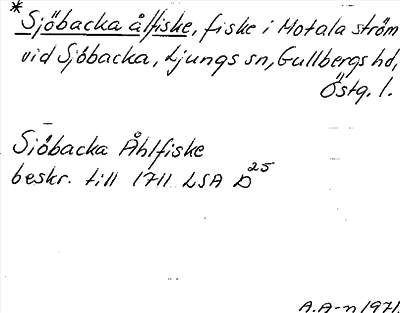 *Sjöbacka ålfiske, fiske i Motala ström
vid Sjöbacka, Ljungs sn, Gullbergs hd,
Östg. l.
Siöbacka Åhlfiske
beskr. till 1711 LSA D25
A.A-n 1971.